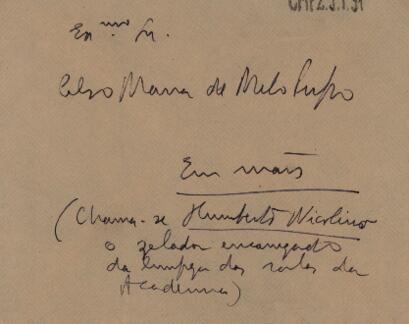 CMP2.3.1.31
Exmo Sr.
Celso Maria de Mello Pupo
Em mãos
(Chama-se Humberto Nicolino
o zelador encarregado
da limpeza das salas da
Academia)